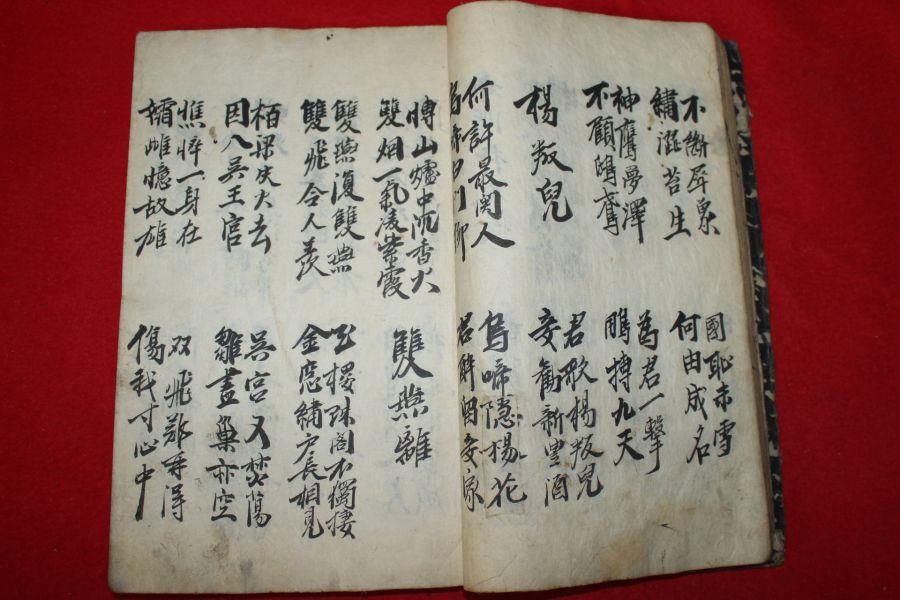 不斷犀象
繡澁苔生
國恥未雪
何由成名
神鷹夢澤
不顧鴟鳶
爲君一擊
鵬搏九天
楊叛兒
君歌楊叛兒
妾勸新豊酒
何許最関人
烏啼白門柳
烏啼隱楊花
君醉留妾家
博山爐中沉香火
雙烟一氣凌紫霞
雙燕離
雙燕復雙燕
雙飛令人羨
玉樓珠閣不獨棲
金窓繡戶長相見
栢梁失火去
因入吳王宮
吳宮又焚蕩
雛盡巢亦空
憔悴一身在
孀雌憶故雄
双飛難再得
傷我寸心中